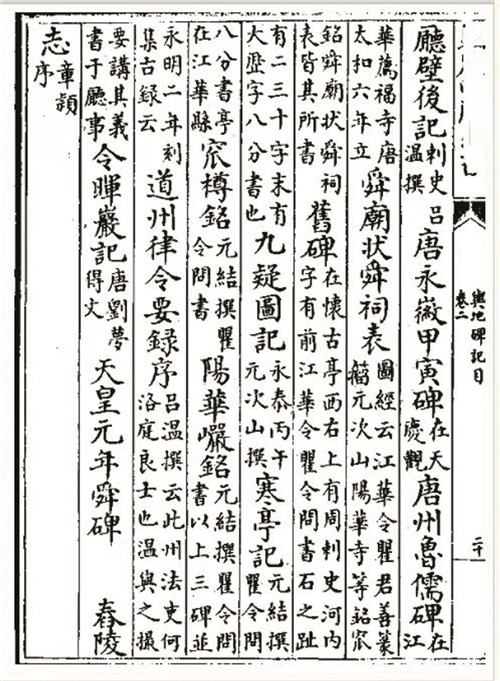 輿地碑記目 卷二 二十
廳壁後記刺史呂溫撰唐永徽甲寅碑在天慶觀唐州魯儒碑在江
華薦福寺唐太和六年立舜廟狀舜祠表圖經云江華令瞿君善篆籀元次山陽華寺等銘窊
銘舜廟狀舜祠表皆其所書舊碑在懷古亭西右上有周刺史河內字有前江華令瞿令問書石之趾
有二三十字末有大歷字八分書也九疑圖記永泰丙午元次山撰寒亭記元結撰瞿令問
八分書亭在江華縣窊樽銘元結撰瞿令問書陽華巖銘元結撰瞿令問書以上三碑並
永明二年刻集古錄云道州律令要錄序呂溫撰云此州法吏何洛庭良士也溫與之撮
要講其義書于廳事令暉巖記唐劉夢得文天皇元年舜碑 舂陵
志章潁序